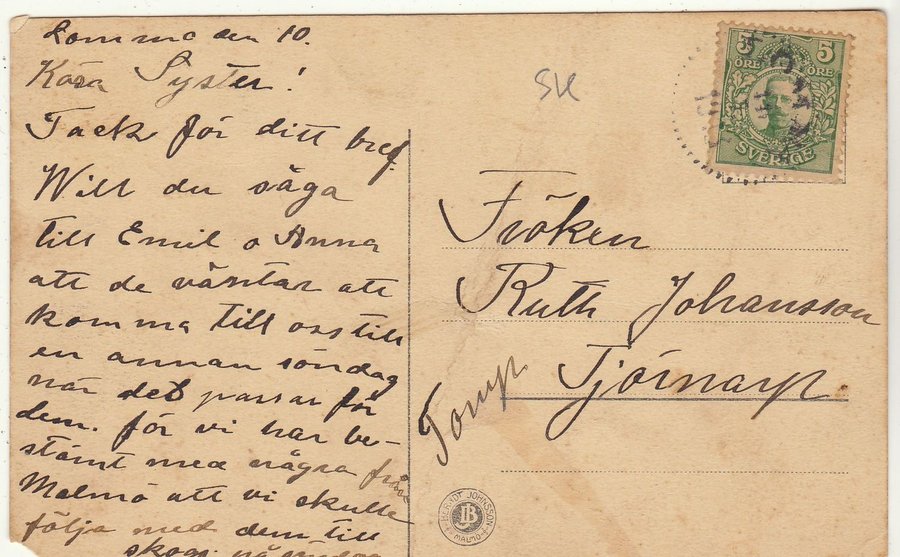 Lomma den 10.
Kära Syster!
Tack för ditt bref.
Will du säga
till Emil o Anna
att de väntar att
komma till oss till
en annan söndag
när det passar för
dem. för vi har be-
stämt med några från
Malmö att vi skulle
följa med dem till
skogs
SK
5 5
ÖRE ÖRE
SVERIGE
Fröken
Ruth Johansson
Tjörnarp
BERNDT JOHNSSON
MALMÖ